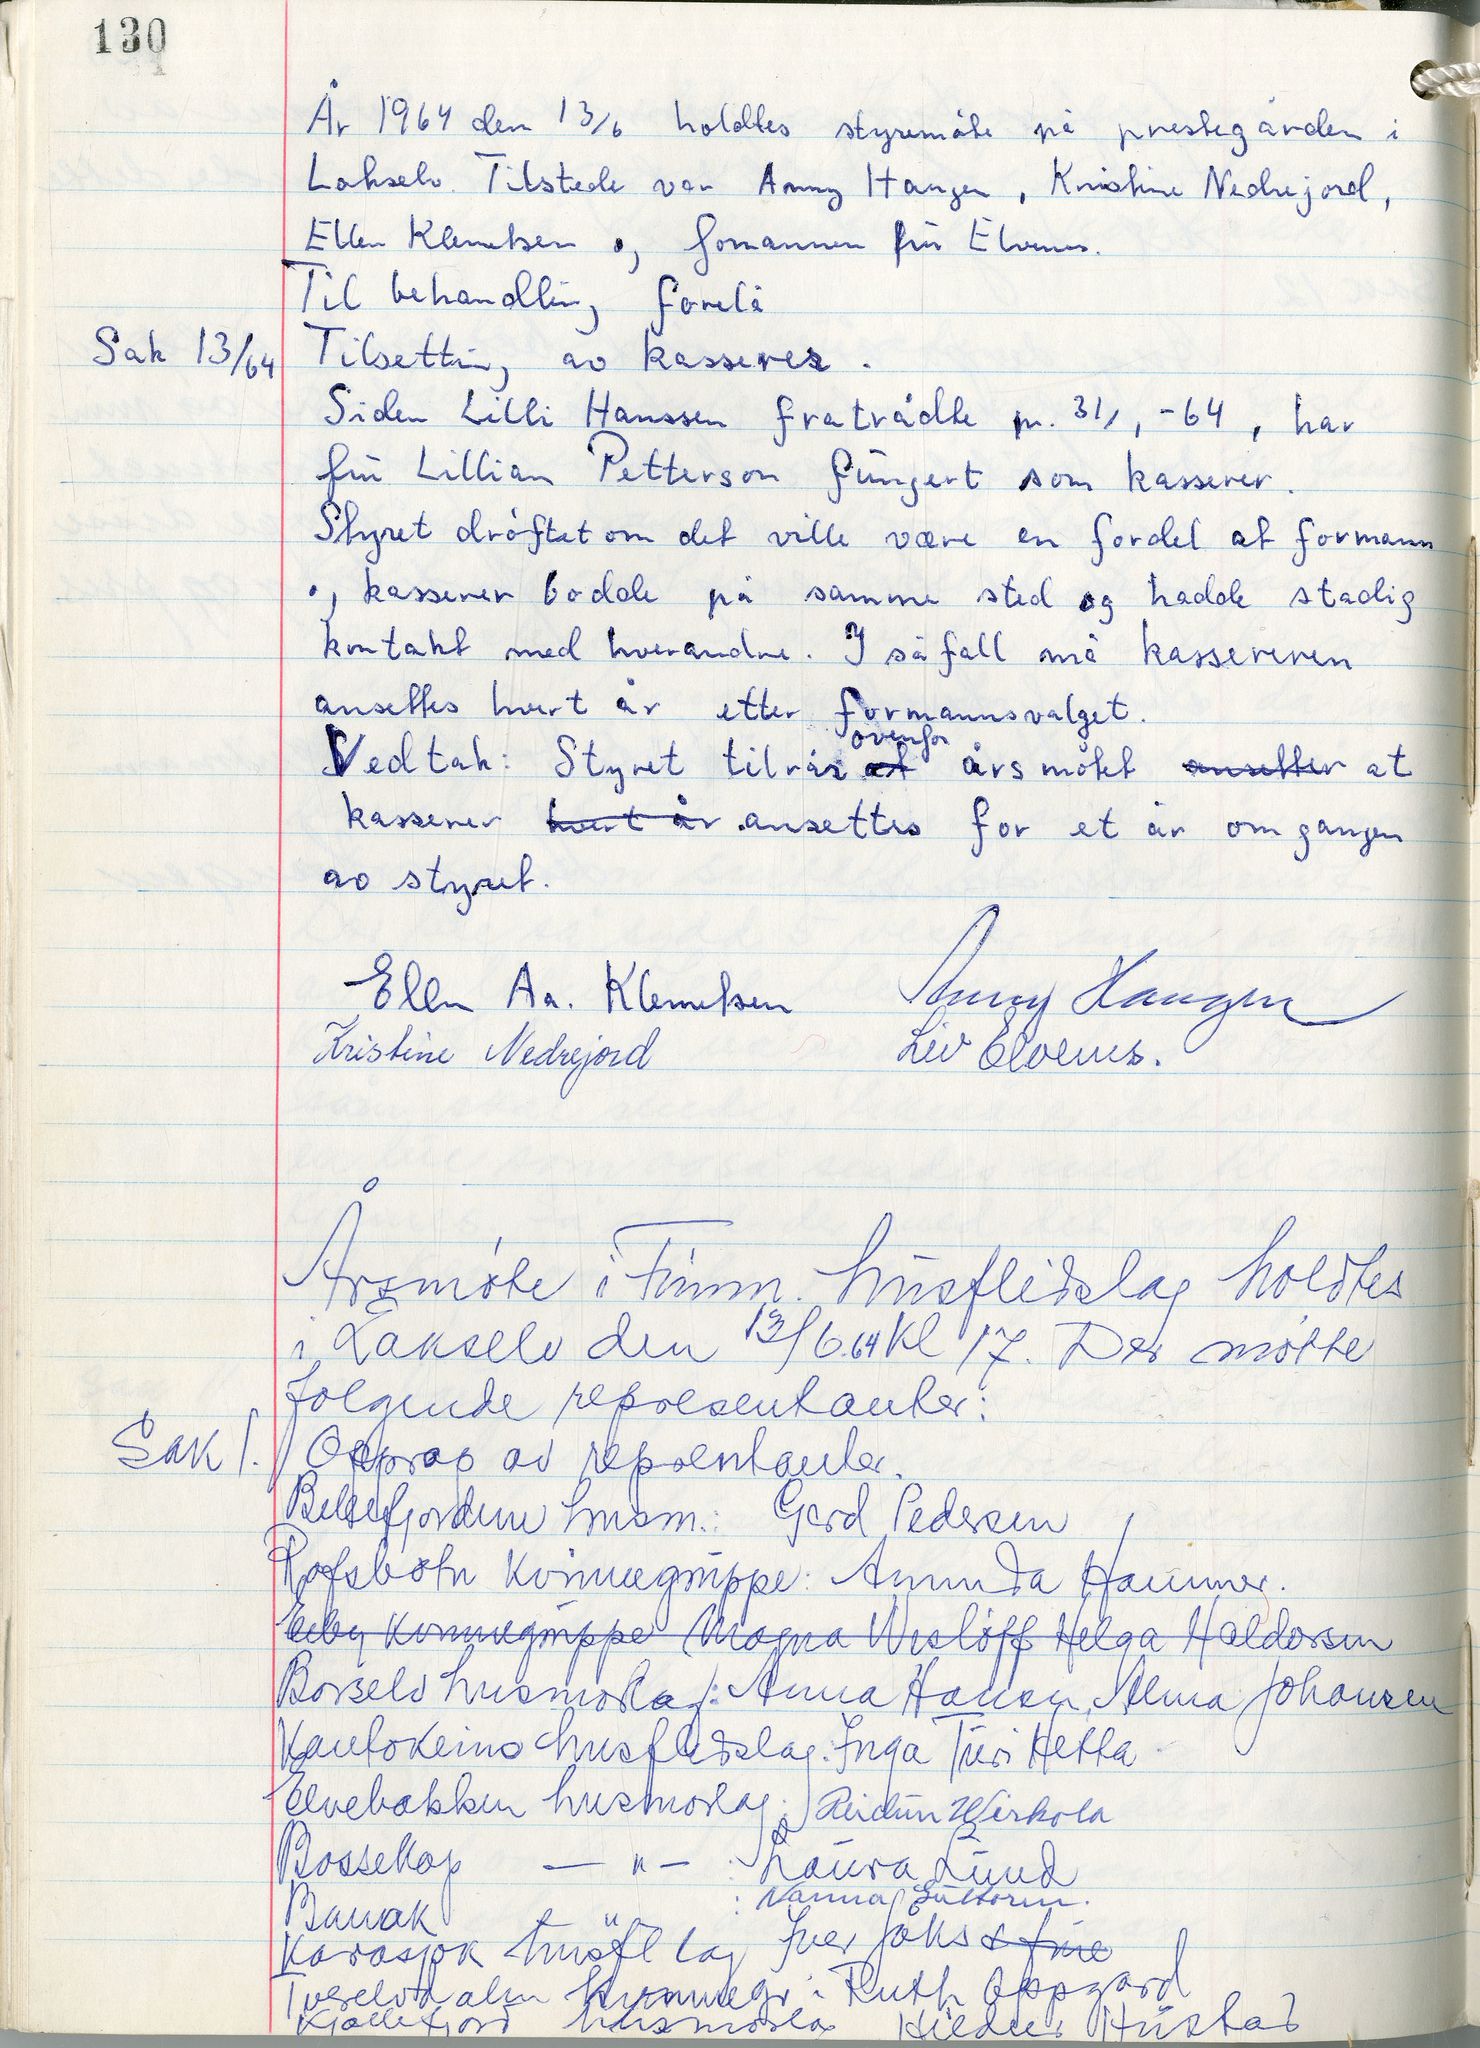 130
År 1964 den 13/6 holdtes styremøte på prestegården i
Lakselv. Tilstede var Anny Haugen, Kristine Nedrejord,
Ellen Klemetsen og formannen fru Elvenes.
Til behandling forelå
Sak 13/64 Tilsetting av kasserer.
Siden Lilli Hanssen fratrådte pr. 31/1 -64, har
fru Lillian Petterson fungert som kasserer.
Styret drøftet om det ville være en fordel at formann
og kasserer bodde på samme sted og hadde stadig
kontakt med hverandre. I så fall må kassereren
ansettes hvert år etter formannsvalget.
Vedtak: Styret tilrår at ovenfor årsmøtet ansetter at
kasserer hvert år ansettes for et år om gangen
av styret.
Ellen Aa. Klemetsen Anny Haugen
Kristine Nedrejord Liv Elvenes.
Årsmøte i Finnm. husflidslag holdtes
i Lakselv den 13/6.64 kl 17. Der møtte
følgende representanter:
Sak 1. Opprop av reprentanter.
Bekkefjorden husm.: Gerd Pedersen
Rafsbotn Kvinnegruppe: Amunda Hammer.
Kvinnegruppe Magna Wisløff Helga Haldorsen
Børselv husmorlag: Anna Hansen, Alma Johansen
Kautokeino husflidslag: Inga Turi Hetta
Elvebakken husmorlag: Reidun Wirkola
Bossekop — " — : Laura Lund
Banak " : Nanna Guttorm.
Karasjok husfl lag Iver Jåks & frue
Tverelvdalen kvinnegr: Ruth Oppgård
Kjøllefjord husmorlag Hildur Hustad